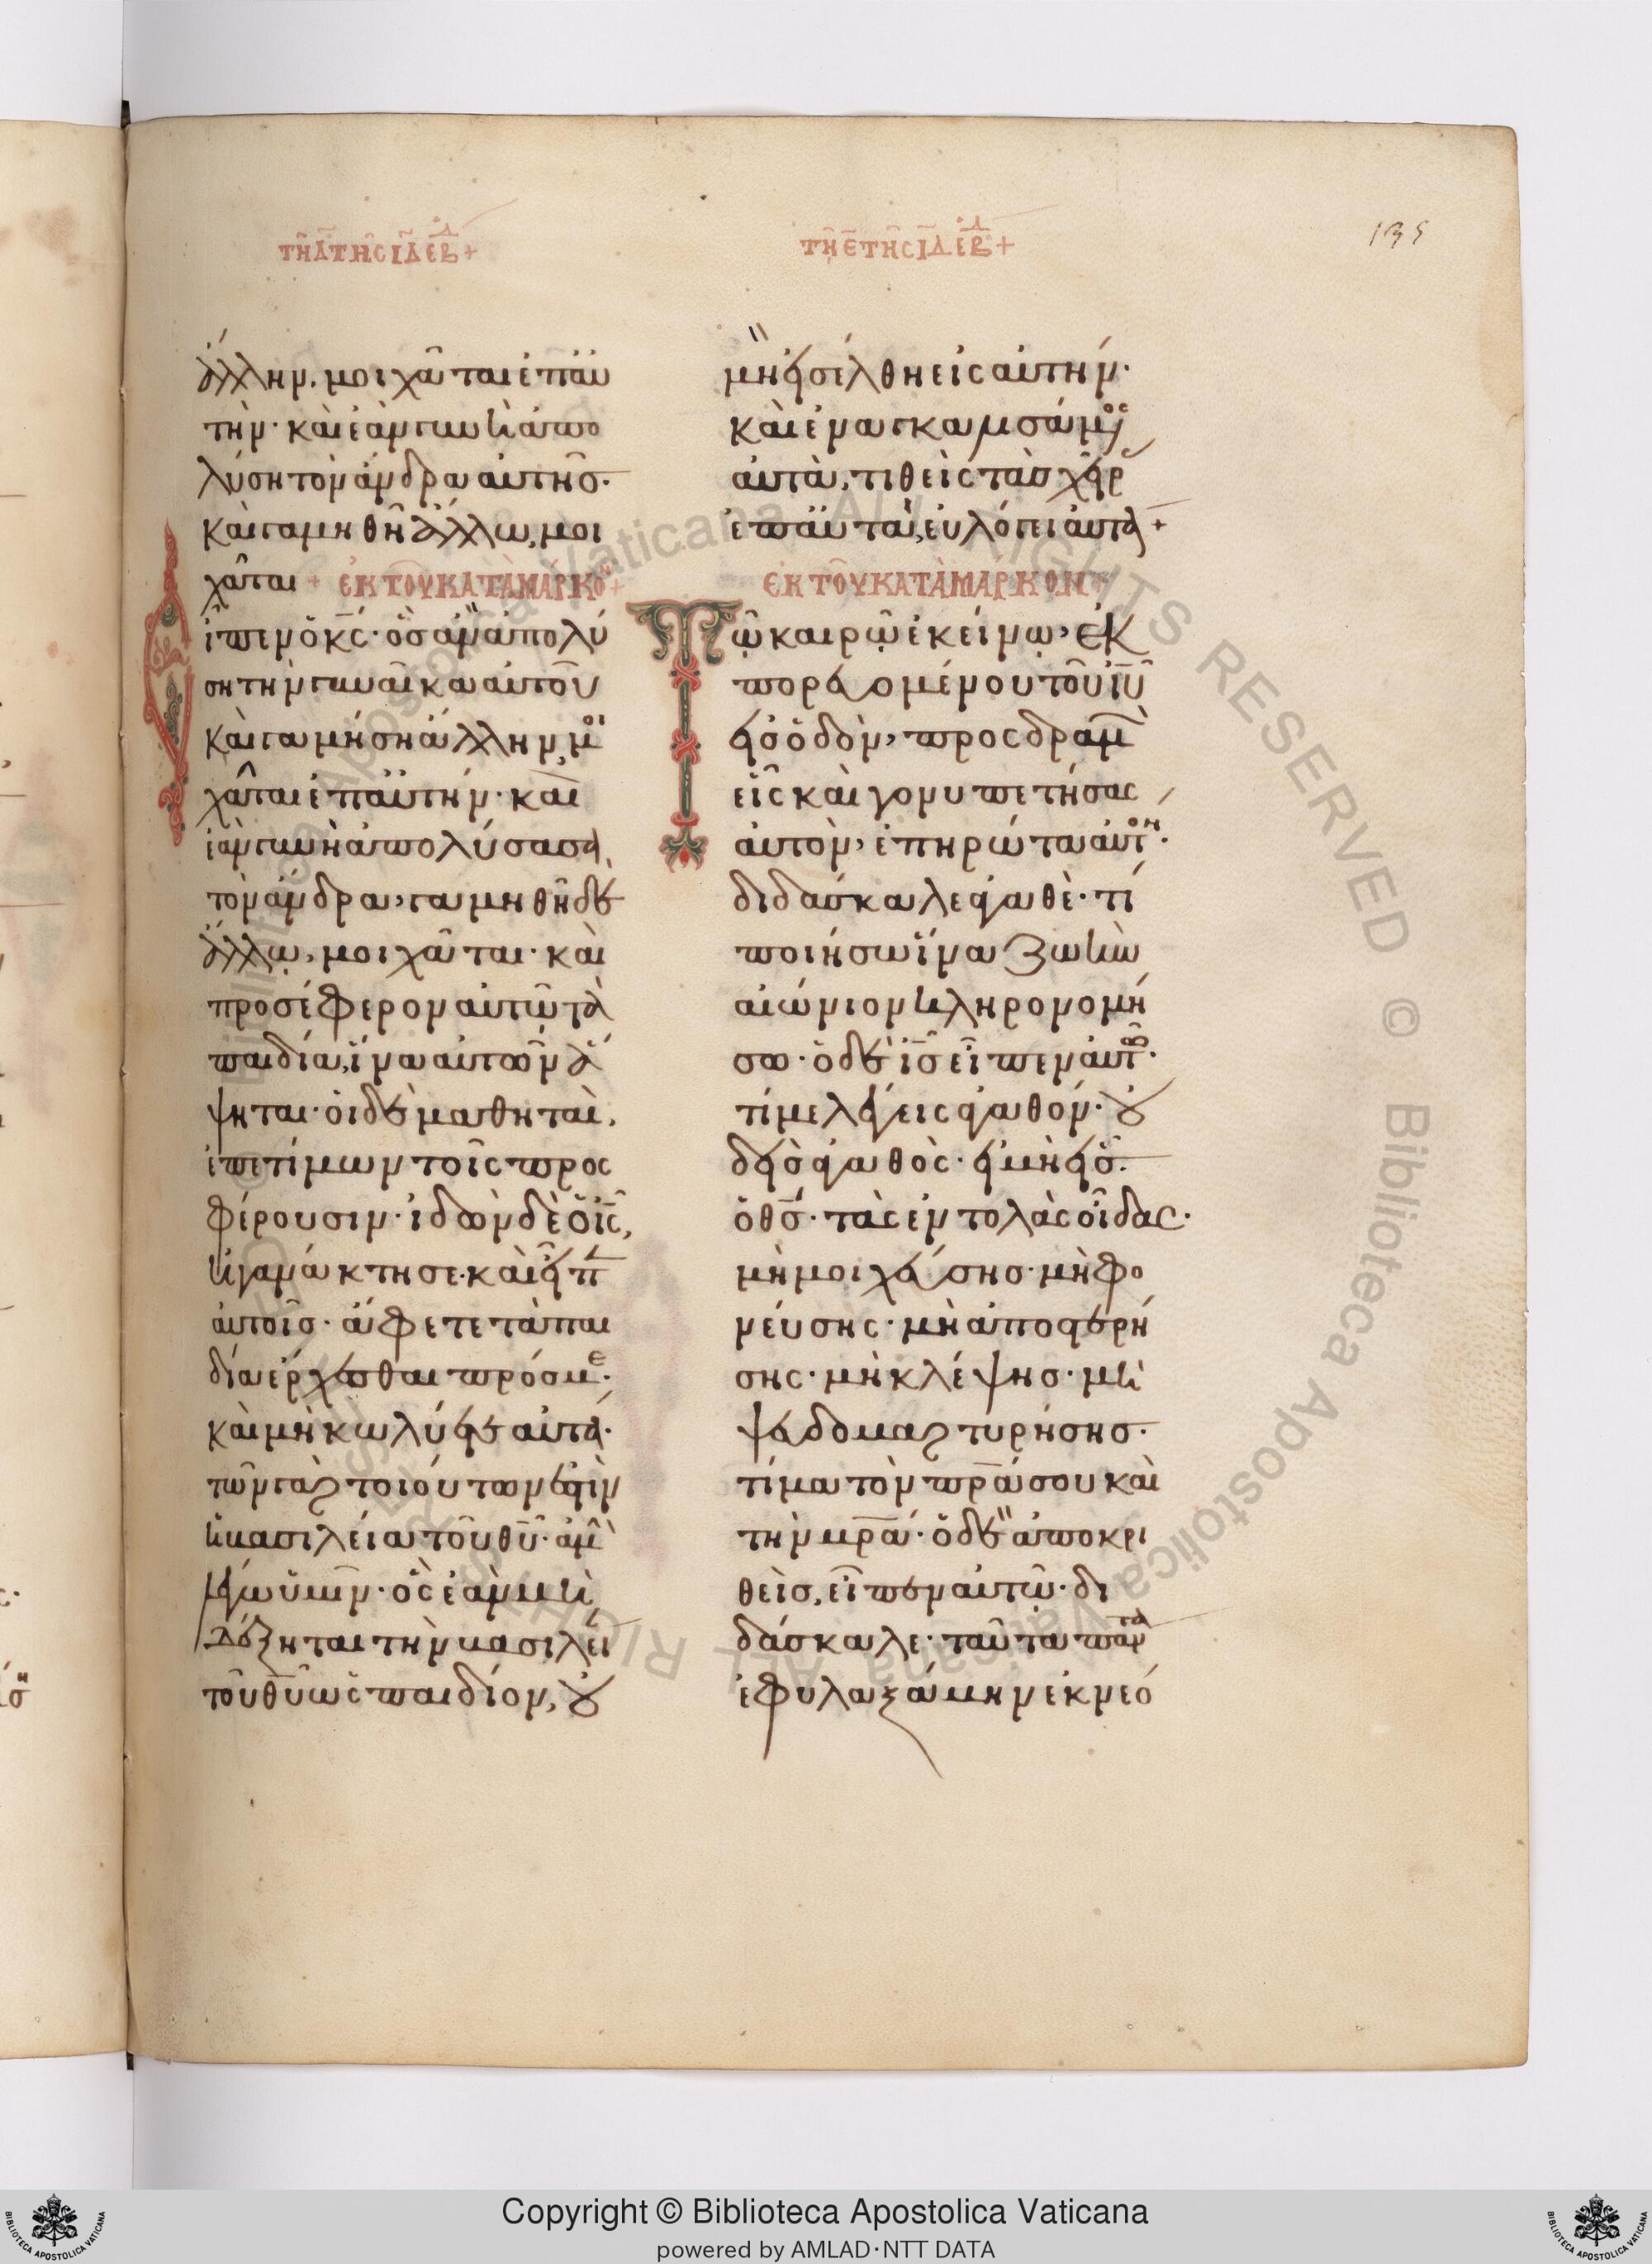 τῇ δ τῆς ιδ ἑβδ +
ἄλλην, μοιχᾶται ἐπ' αυ
τὴν· καὶ ἐὰν γυνὴ ἀπο
λύση τὸν ἄνδρα αὐτῆς·
καὶ γαμηθῆ ἄλλω, μοι
χᾶται + ἐκ τοῦ κατὰ μάρκο +
εἶπεν ὁ κς· ὃς ἂν ἀπολύ
ση τὴν γυναῖκα αὐτοῦ
καὶ γαμήση ἄλλην, μοι
χᾶται ἐπ' αὐτήν· καὶ
ἐὰν γυνὴ ἀπολύσασα
τὸν ἄνδρα, γαμηθῆ δὲ
ἄλλω, μοιχᾶται· καὶ
προσέφερον αὐτῶ τὰ
παιδία, ἵνα αὐτῶν ἅ
ψηται· οἱ δὲ μαθηταὶ,
ἐπετίμων τοῖς προς
φέρουσιν· ἰδὼν δὲ ὁ ις,
ἠγανάκτησε· καὶ εἶπ
αὐτοῖς· ἄφετε τὰ παι
δία ἔρχεσθαι πρός με·
καὶ μὴ κωλύετε αὐτά·
τῶν γὰρ τοιούτων ἐστὶν
ἡ βασιλεία τοῦ θυ· ἀμὴ
λέγω ὑμῖν· ὃς ἐὰν μὴ
δέξηται τὴν βασιλεί
τοῦ θυ ὡς παιδίον, οὐ
τῇ ε τῆς ιδ ἑβδ +
μὴ εἰσέλθη εἰς αὐτήν·
καὶ ἐναγκαλισάμενος
αὐτὰ, τιθεὶς τὰς χεῖρ
ἐπ' αὐτὰ, εὐλόγει αὐτά +
ἐκ τοῦ κατὰ μάρκον +
Τῷ καιρῷ ἐκείνῳ, ἐκ
πορευομένου τοῦ ιυ
εἰς ὁδὸν, προσδραμὼ
εἷς καὶ γονυπετήσας
αὐτὸν, ἐπηρώτα αὐτόν·
διδάσκαλε ἀγαθὲ· τί
ποιήσω ἵνα ζωὴν
αἰώνιον κληρονομή
σω· ὁ δὲ ις εἶπεν αὐτῶ·
τί με λέγεις ἀγαθόν· οὐ
δεὶς ἀγαθὸς· εἰ μὴ εἷς·
ὁ θς· τὰς ἐντολὰς οἶδας·
μὴ μοιχεύσης· μὴ φο
νεύσης· μὴ ἀποστερή
σης· μὴ κλέψης· μὴ
ψευδομαρτυρήσης·
τίμα τὸν πρα σου καὶ
τὴν μρα· ὁ δὲ ἀποκρι
θεὶς, εἶπεν αὐτῷ· δι
δάσκαλε· ταῦτα πάντα
ἐφυλαξάμην ἐκ νεό
Copyright © Biblioteca Apostolica Vaticana
powered by AMLAD·NTT DATA